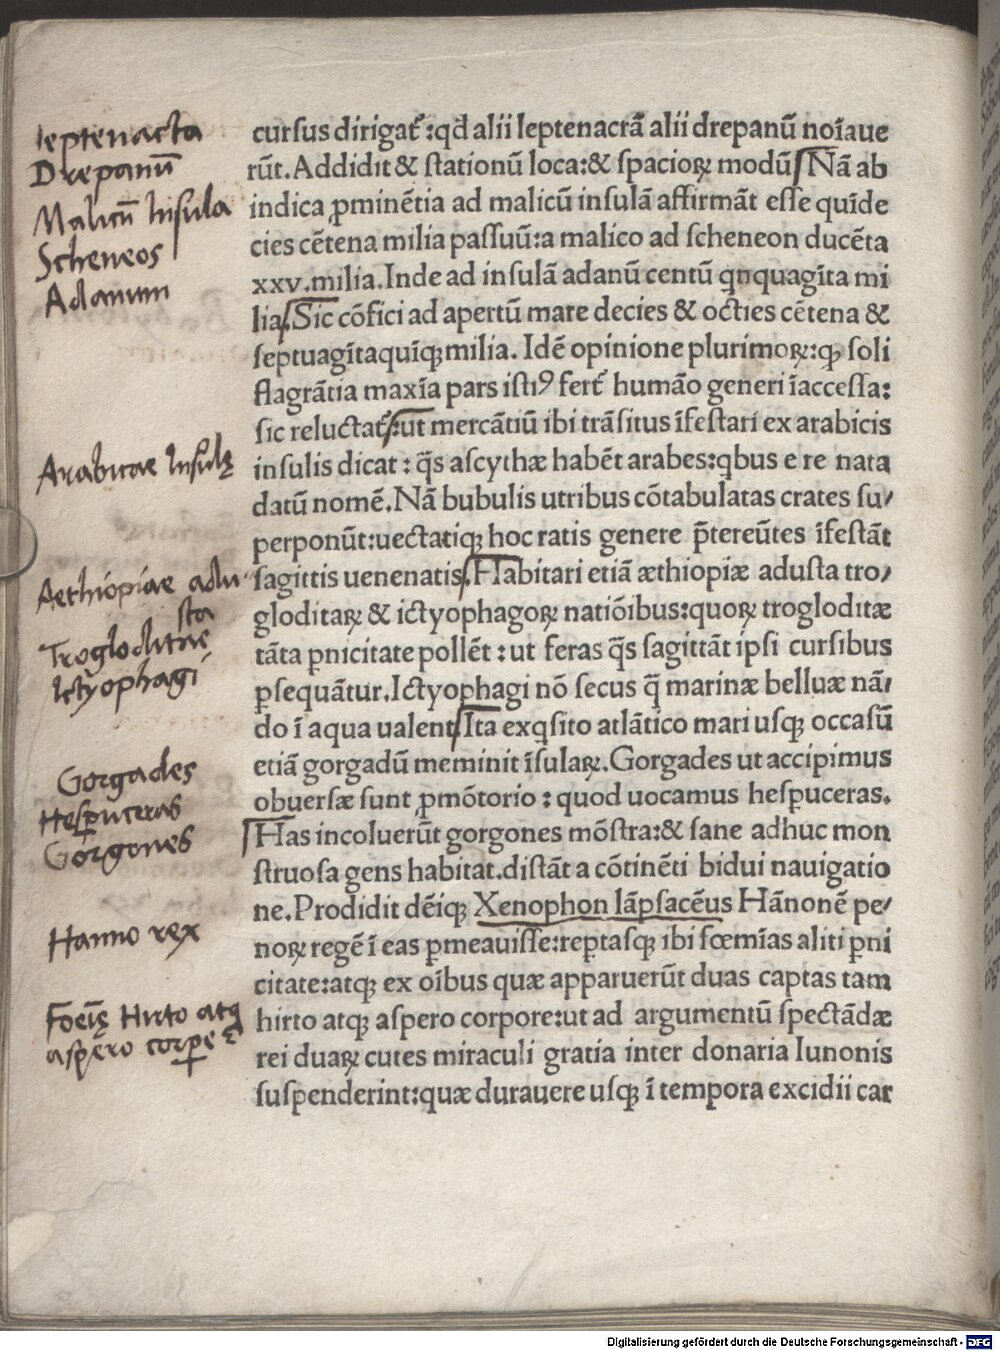 leptenacta
Drepanū
Malicū Insula
Scheneos
Adanum
Arabicae Insulę
Aethiopiae adu
sta
Trogloditae
Ictyophagi
Gorgades
Hesp̱uceras
Gorgones
Hanno rex
Foeīę Hirto atq
aspero corpe
cursus dirigat᷑:qd alii leptenacrā alii drepanū noīaue
rūt.Addidit & stationū loca:& spacioꝝ modū Nā ab
indica ꝓminētia ad malicū insulā affirmāt esse quīde
cies cētena milia passuū:a malico ad scheneon ducēta
xxv.milia.Inde ad insulā adanū centū qnquagīta mi
lia.Sic cōfici ad apertū mare decies & octies cētena &
septuagītaquīqꝫ milia. Idē opinione plurimoꝝ:qꝫ soli
flagrātia maxīa pars istiꝰ fert᷑ humāo generi īaccessa:
sic reluctat᷑:ut mercātiū ibi trāsitus īfestari ex arabicis
insulis dicat : q̄s ascythæ habēt arabes:qbus e re nata
datū nomē.Nā bubulis utribus cōtabulatas crates su/
perponūt:uectatiqꝫ hoc ratis genere p̄tereūtes īfestāt
sagittis uenenatis.Habitari etiā æthiopiæ adusta tro/
gloditaꝝ & ictyophagoꝝ natiōibus:quoꝝ trogloditæ
tāta ꝑnicitate pollēt : ut feras q̄s sagittāt ipsi cursibus
ꝑsequātur.Ictyophagi nō secus q̄ marinæ belluæ nā/
do ī aqua ualent Ita exqsito atlātico mari usqꝫ occasū
etiā gorgadū meminit īsulaꝝ.Gorgades ut accipimus
obuersæ sunt ꝓmōtorio : quod uocamus hesꝑuceras.
Has incoluerūt gorgones mōstra:& sane adhuc mon
struosa gens habitat.distāt a cōtinēti bidui nauigatio
ne.Prodidit dēiqꝫ Xenophon lāpsacēus Hānonē pe/
noꝝ regē ī eas ꝑmeauisse:reptasqꝫ ibi fœmīas aliti ꝑni
citate:atqꝫ ex oībus quæ apparuerūt duas captas tam
hirto atqꝫ aspero corpore:ut ad argumentū spectādæ
rei duaꝝ cutes miraculi gratia inter donaria Iunonis
suspenderint:quæ durauere usqꝫ ī tempora excidii car
Digitalisierung gefördert durch die Deutsche Forschungsgemeinschaft - DFG